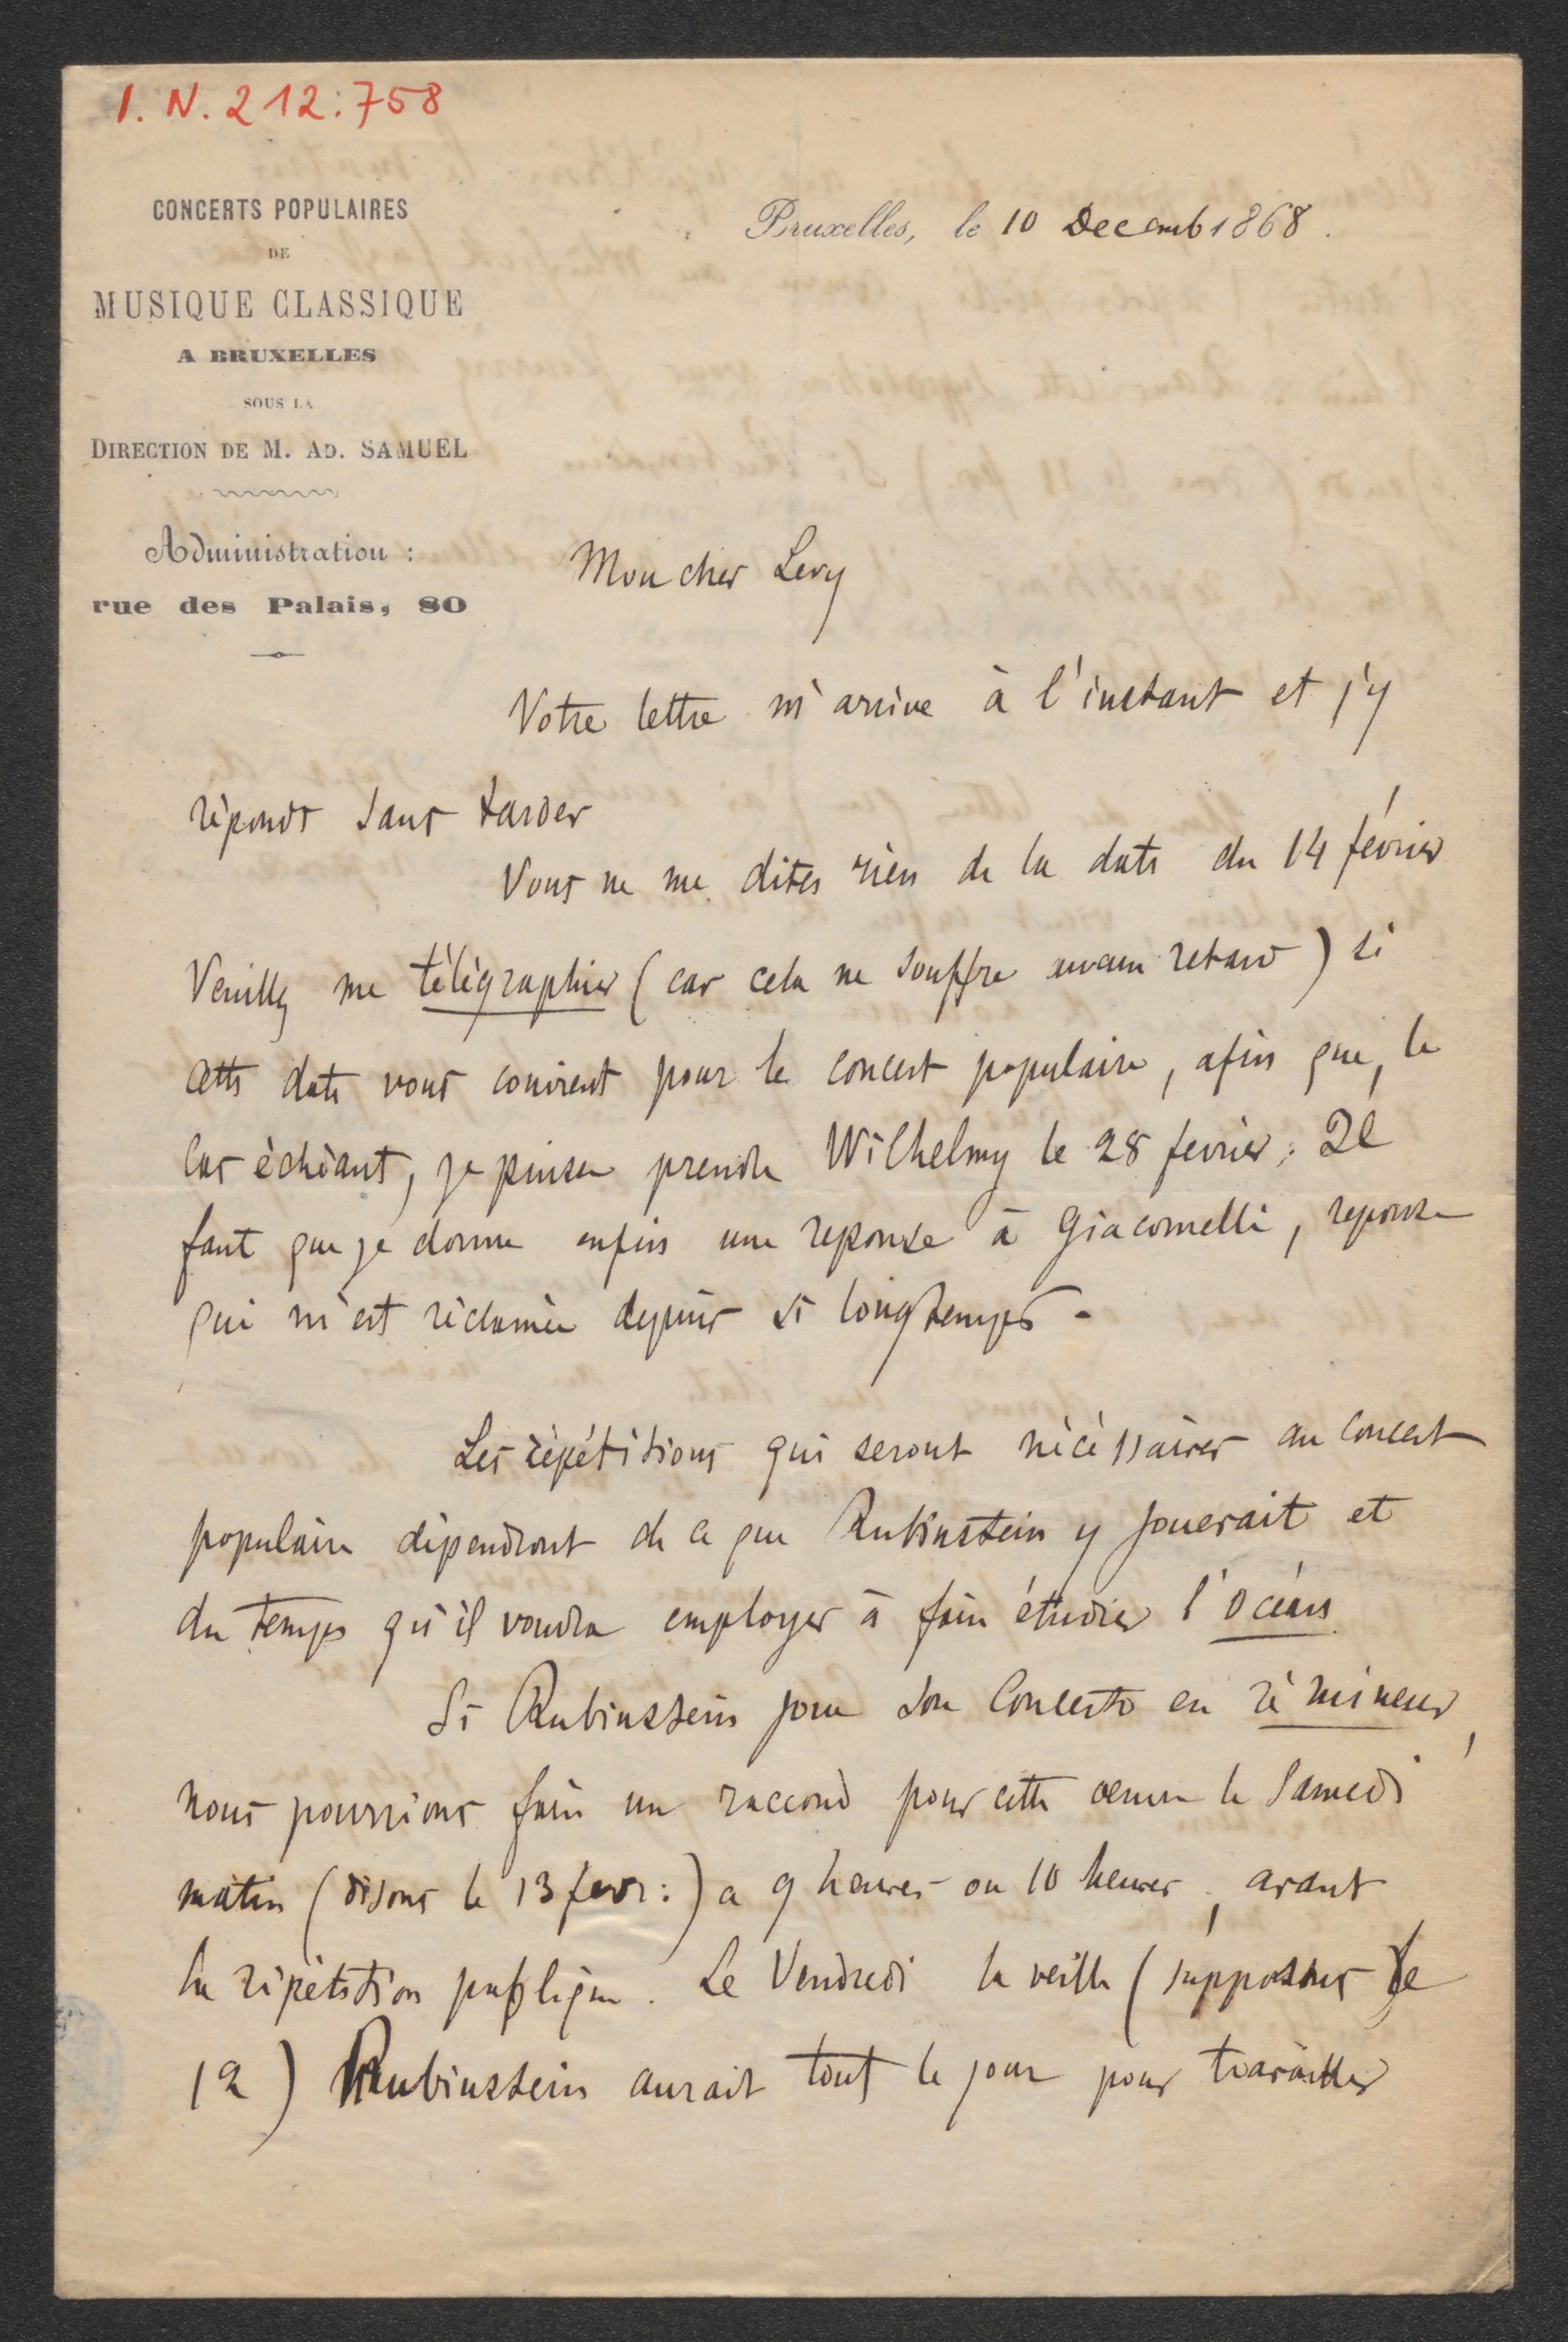 I. N. 212.758
CONCERTS POPULAIRES
DE
MUSIQUE CLASSIQUE
A BRUXELLES
SOUS LA
DIRECTION DE M. AD. SAMUEL
Administration :
rue des Palais, 80
Bruxelles, le 10 Decemb 1868.
Mon cher Levy
Votre lettre m'arrive à l'instant et j'y
réponds sans tarder
Vous ne me dites rien de la date du 14 février
Veuillez me télégraphier (car cela ne souffre aucun retard) si
cette date vous convient pour le concert populaire, afin que, le
cas échéant, je puisse prendre Wilhelmy le 28 fevrier; Il
faut que je donne enfin une reponse à Giacomelli, reponse
qui m'est réclamée depuis si longtemps.
Les répétitions qui seront nécéssaires au concert
populaire dépendront de ce que Rubinstein y jouerait et
du temps qu'il voudra employer à faire étudier l'océan
Si Rubinstein joue son Concerto en ré mineur,
nous pourrions faire un raccord pour cette oeuvre le Samedi
matin (disons le 13 fevr:) a 9 heures ou 10 heures, avant
la répétition publique. Le Vendredi la veille (supposons le
12) Rubinstein aurait tout le jour pour travailler